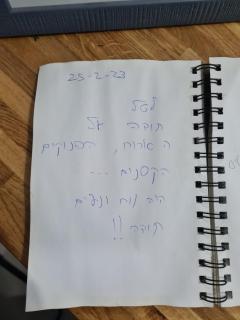 25-2-23
לטל
תודה על
האירוח, הפינוקים
הקטנים ...
היה נוח ונעים
תודה !!